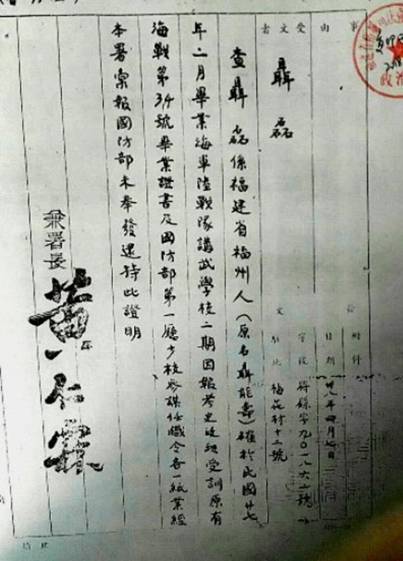 事由
受文者
聶磊
附件
日期
卅八年四月七日
字號
駐地
梅花村十三號
查聶磊係福建省福州人（原名聶能壽）確於民國廿七
年二月畢業海軍陸戰隊講武學校二期因報考史政班受訓原有
海戰第34號畢業證書及國防部第一廳少校參謀任職令各一紙業經
本署彙報國防部未奉發還特此證明
兼署長
黃仁霖